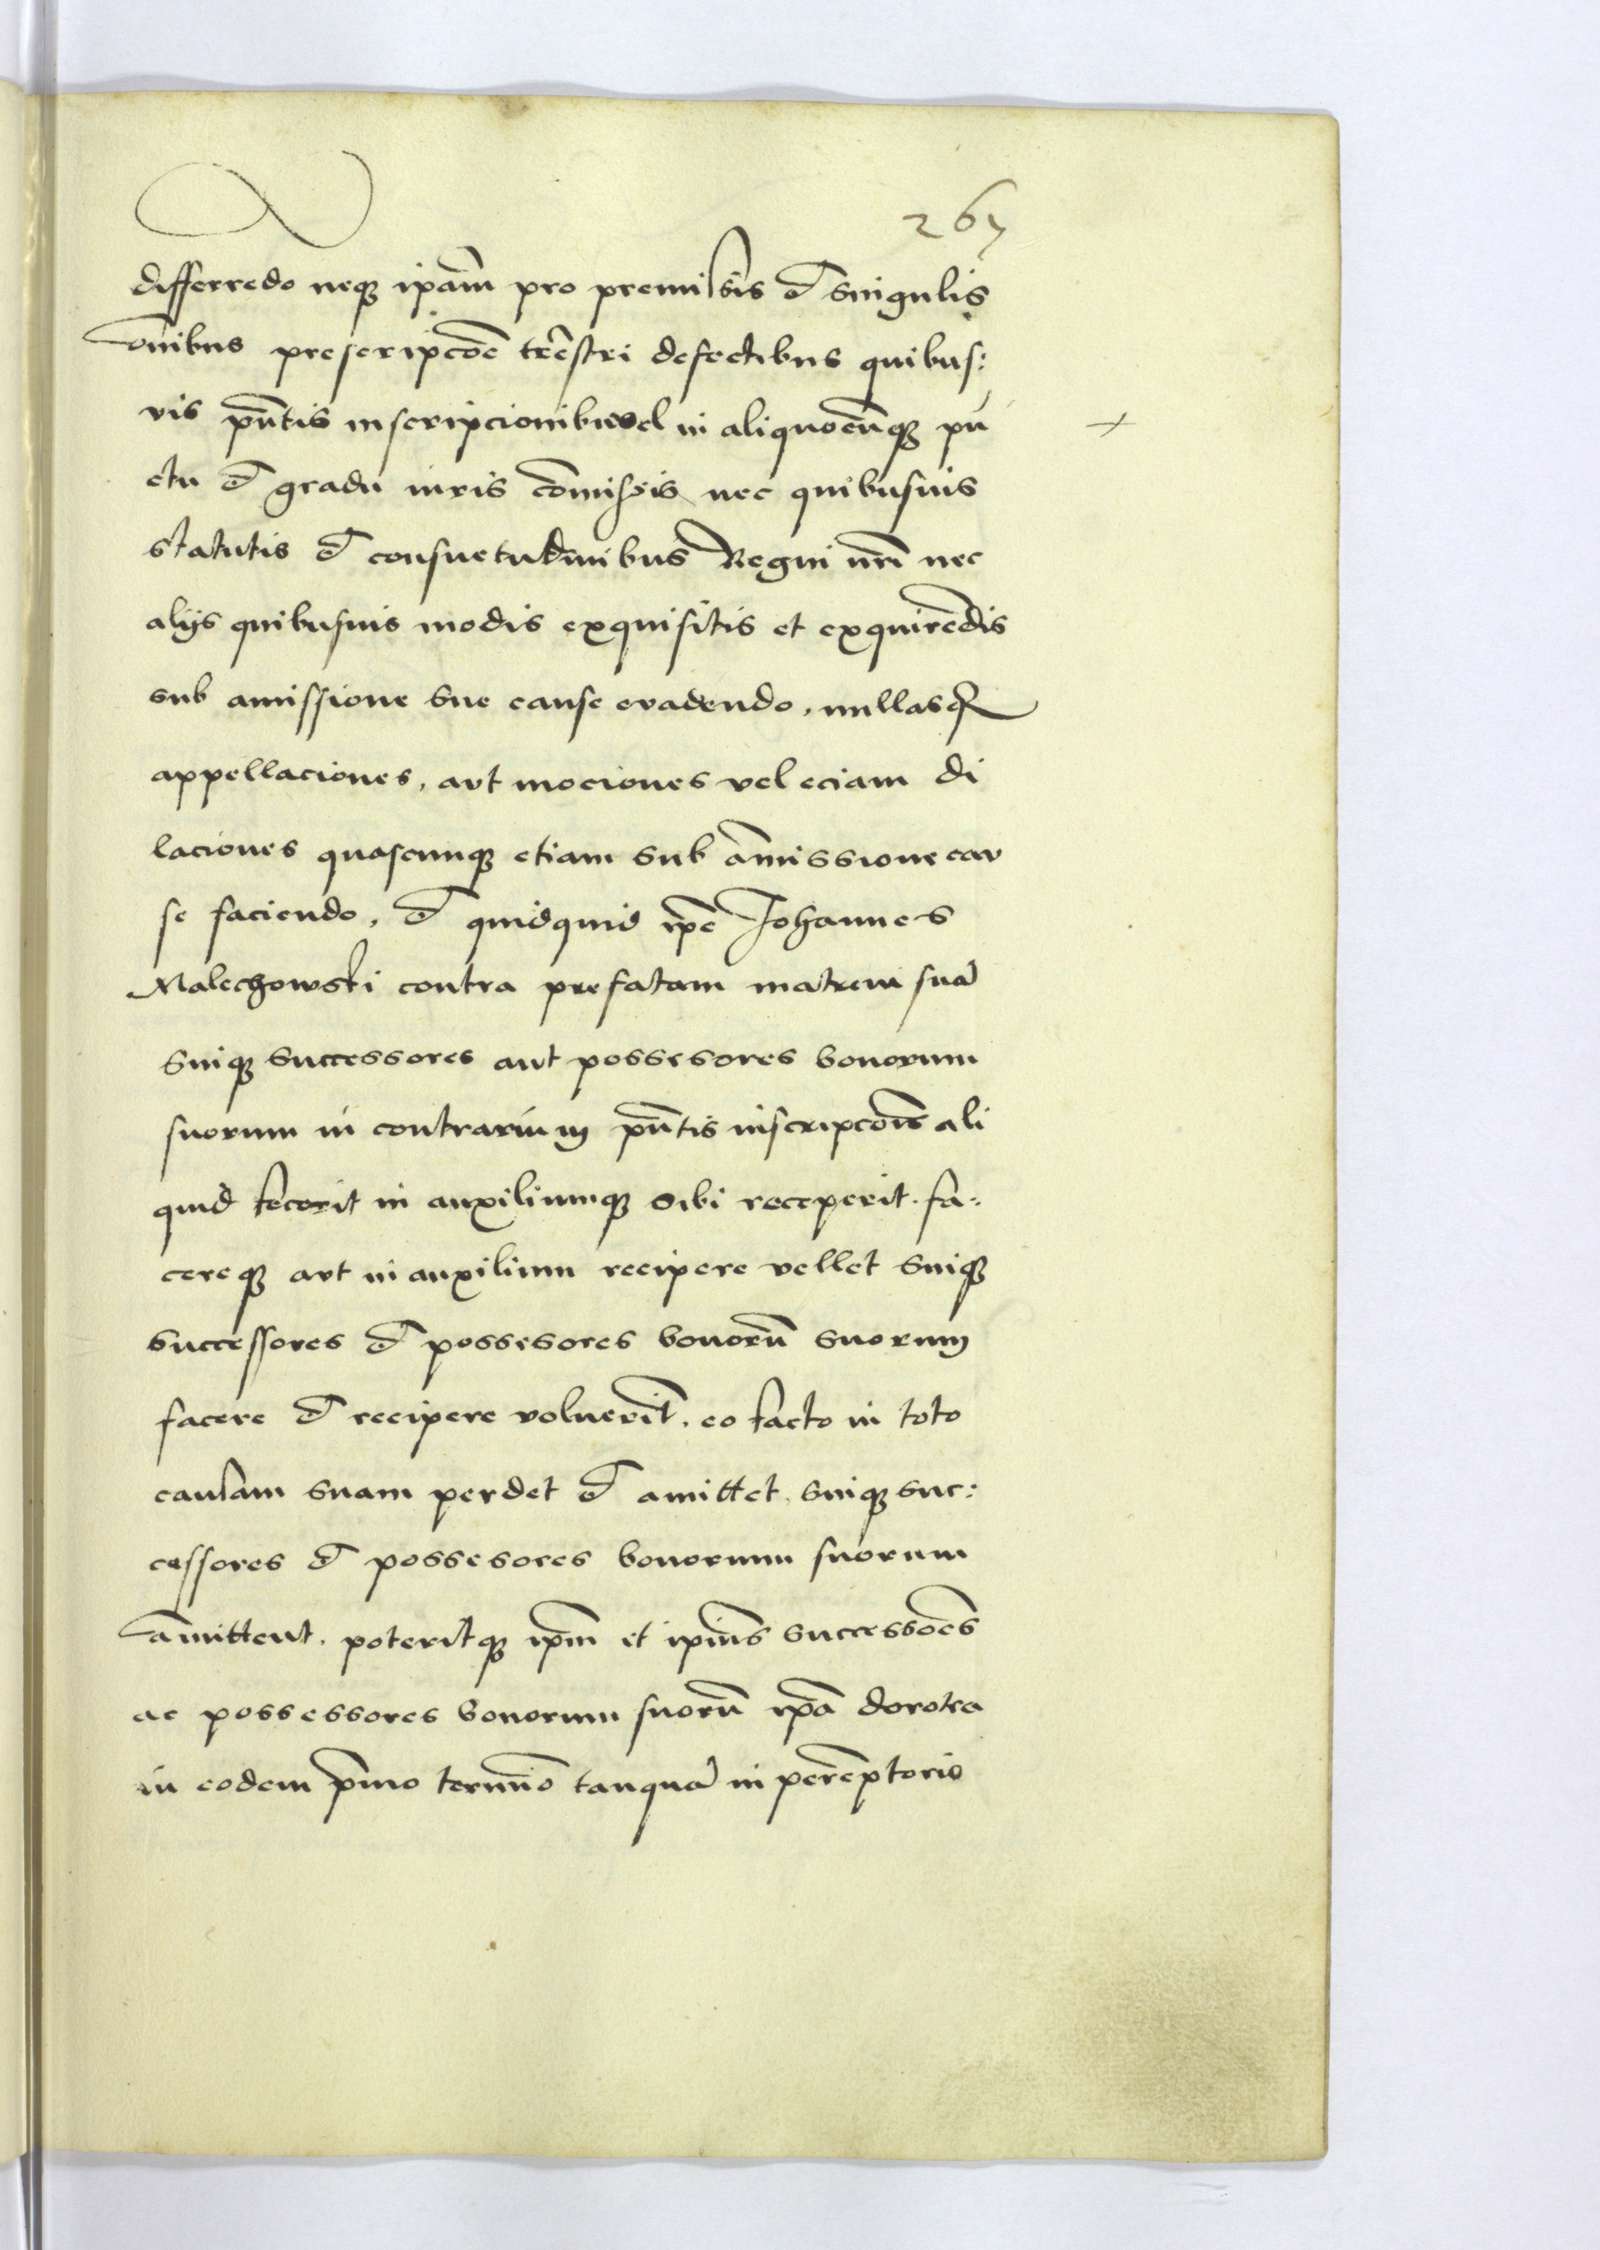 267
differredo neq3 ipam̄ pro premissis et singulis
om̄ibus prescripcōe trēstri defectibus quibus:
vis pn̄tis inscripcionibus vel in aliquocūq3 pū
ctu et gradu iuris cōmissis nec quibusuis
statutis et consuetudinibus Regni nr̄i nec
alijs quibusuis modis exquisitis et exquirēdis
sub amissione sue cause evadendo, nullasq3
appellaciones, aut mociones vel eciam di
laciones quascunq3 etiam sub am̄issione cau
se faciendo, et quidquid ip̄e Johannes
Malechowski contra prefatam matrem suā
suiq3 successores aut possesores bonorum
suorum in contrarium pn̄tis inscripcōnis ali
quid fecerit in auxiliumq3 sibi receperit. fa:
cereq3 aut in auxilium recipere vellet suiq3
successores et possesores bonorū suorum
facere et recipere voluerīt. eo facto in toto
causam suam perdet et amittet. suiq3 suc:
cessores et possesores bonorum suorum
am̄ittent. poteritq3 ipm̄ et ipius̄ successōes
ac possessores bonorum suorū ip̄a dorotea
in eodem pīmo termīo tanquā in perēptorio